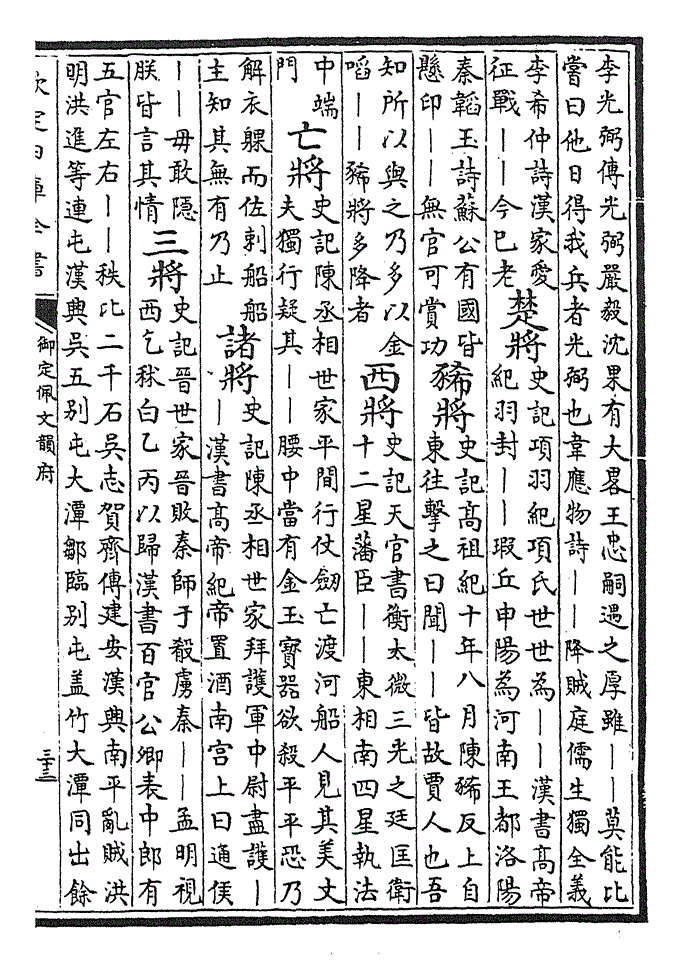 李光弼傳光弼嚴毅沈果有大畧王忠嗣遇之厚雖——莫能比
嘗曰他日得我兵者光弼也韋應物詩——降賊庭儒生獨全義
李希仲詩漢家愛
征戰——今巳老
楚將
史記項羽紀項氏世世為——漢書髙帝
紀羽封——瑕丘申陽為河南王都洛陽
秦韜玉詩蘇公有國皆
懸印——無官可賞功
豨將
史記髙祖紀十年八月陳豨反上自
東往擊之曰聞——皆故賈人也吾
知所以與之乃多以金
㗖——豨將多降者
西將
史記天官書衡太微三光之廷匡衛
十二星藩臣——東相南四星執法
中端
門
亡將
史記陳丞相世家平間行仗劒亡渡河船人見其美丈
夫獨行疑其——腰中當有金玉寶器欲殺平平恐乃
解衣躶而佐刺船船
主知其無有乃止
諸將
史記陳丞相世家拜護軍中尉盡護—
—漢書髙帝紀帝置酒南宫上曰通侯
——毋敢隠
朕皆言其情
三將
史記晉世家晉敗秦師于殽虜秦——孟明視
西乞秫白乙丙以歸漢書百官公卿表中郎有
五官左右——秩比二千石吳志賀齊傳建安漢興南平亂賊洪
明洪進等連屯漢興吳五别屯大潭鄒臨别屯盖竹大潭同出餘
欽定四庫全書
御定佩文韻府
三十三